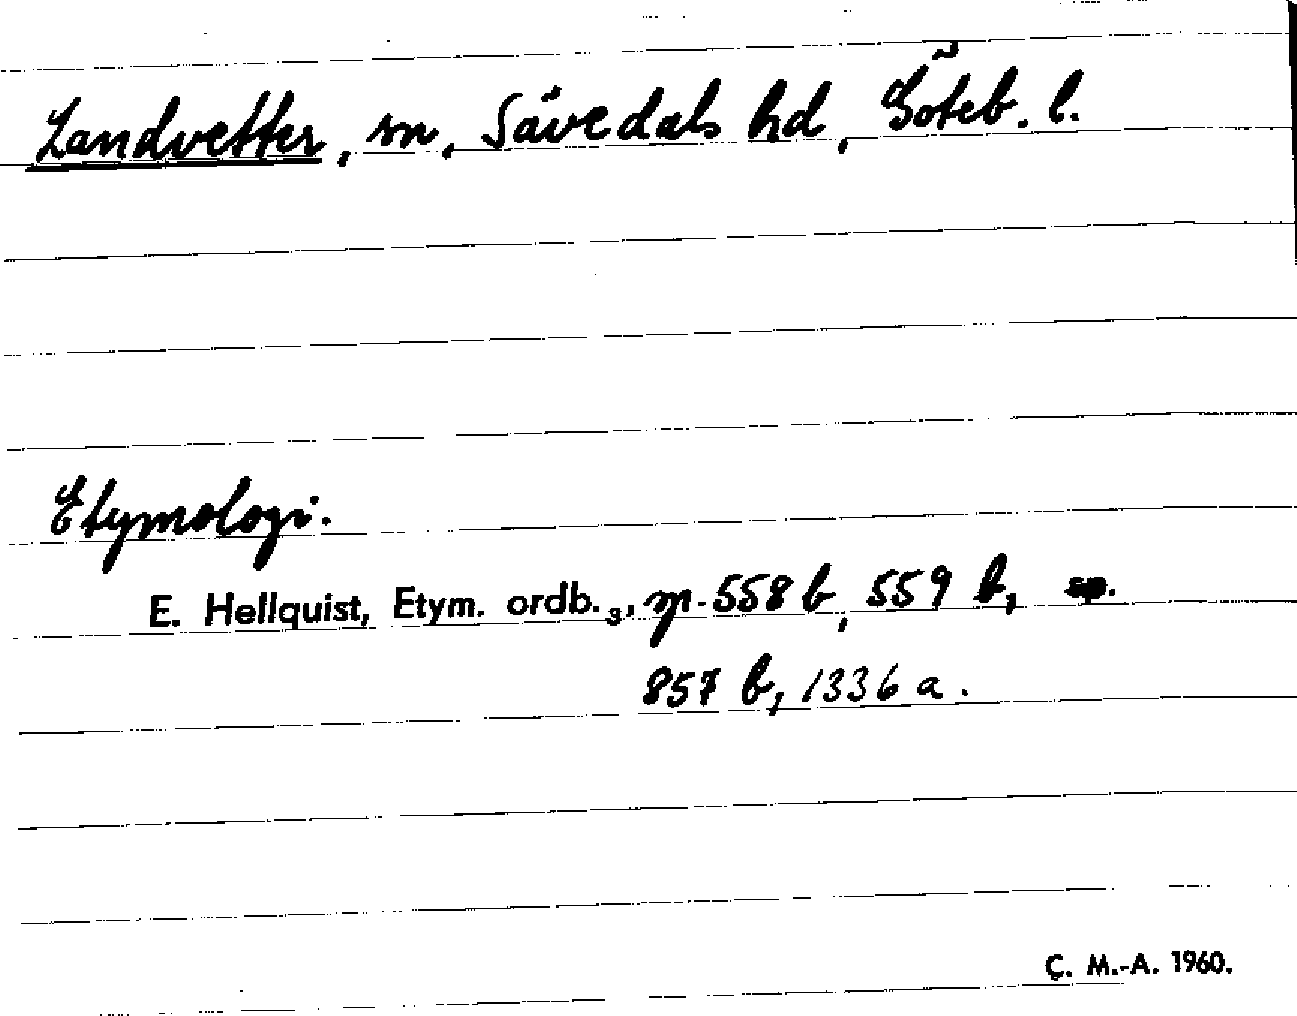 Landvetter, sn, Sävedals hd, Göteb. l.
Etymologi.
E. Hellquist, Etym. ordb.3, sp. 558 b, 559 b, sp.
857 b, 1336 a.
C. M.-A. 1960.